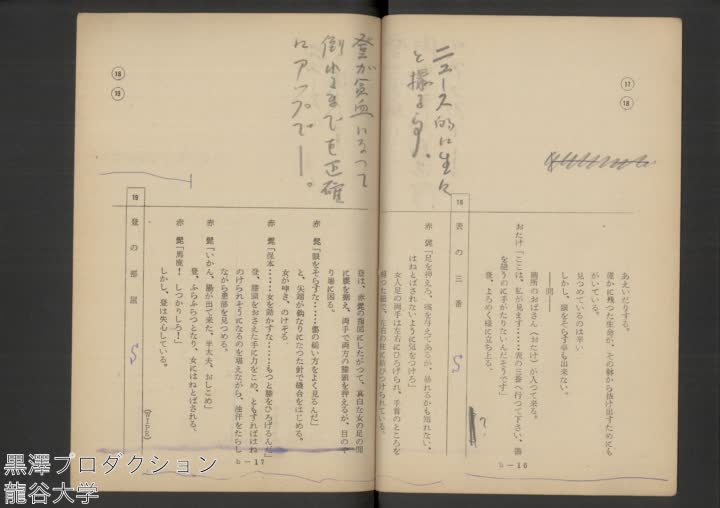 ⑰
⑱
ニュース的に生々
と撮る事。
あえいだりする。
僅かに残つた生命が、その躰から抜け出すためにも
がいている。
見つめているのは辛い
しかし、眼をそらす事も出来ない。
―間―
賄所のおばさん(おたけ)が入つて来る。
おたけ「ここは、私が見ます……表の三番へ行つて下さい、傷
を縫うのに手がたりないんだそうです」
登、よろめく様に立ち上る。
18 表の三番
S
?
赤髭「足を押えろ、痛を与えてあるが、暴れるかも知れない、
はねとばされないように気をつけろ」
女人足の両手は左右にひろげられ、手首のところを
b-16
⑱
⑲
登が貧血になって
倒れるまでを正確
にアップで―。
登は、赤髭の指図にしたがつて、真白な女の足の間
に腰を据え、両手で両方の膝頭を押えるが、目の
り場に困る。
赤髭「眼をそらすな……傷の縫い方をよく見るんだ」
と、尖端が鉤なりにたつた針で縫合をはじめる。
女が呻き、のけぞる。
赤髭「保本……女を動かすな……もつと膝をひろげるんだ」
登、膝頭をおさえた手に力をこめ、ともすればはね
のけられそうになるのを堪えながら、油汗をたらし
ながら患部を見つめる。
赤髭「いかん、腸が出て来た、半太夫、おしこめ」
登、ふらふらつとなり、女にはねとばされる。
赤髭「馬鹿！しつかりしろ！」
しかし、登は失心している。
(WIPE)
19 登の部屋
S
b-17
黒澤プロダクション
龍谷大学